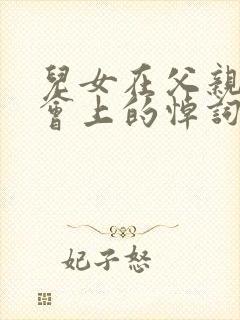 兒女在父親
會上的悼詞
妃子怒